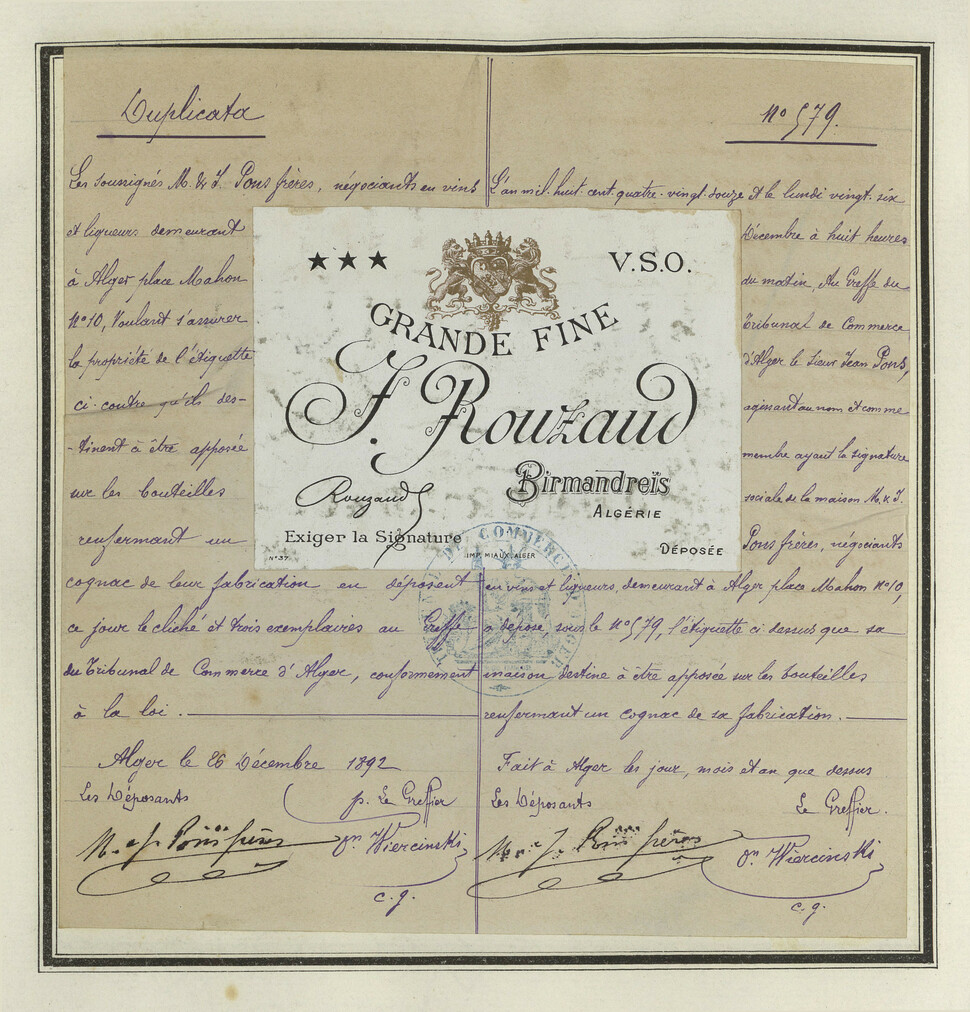 Duplicata
Les soussignés M. & J. Pons frères, négociants en vins
et liqueurs demeurant
à Alger place Mahon
N° 10, Voulant s'assurer
la propriété de l'étiquette
ci-contre qu'ils des-
-tinent à être apposée
sur les bouteilles
renfermant un
cognac de leur fabrication en déposent
ce jour le cliché et trois exemplaires au Greffe
du Tribunal de Commerce d'Alger, conformément
à la loi.
Alger le 26 Décembre 1892
Les Déposants
p. Le Greffier
M. & J. Pons frères
Wiercinski
c. g.
★★★
V.S.O.
GRANDE FINE
J. Rouzaud
Birmandreïs
ALGÉRIE
Rouzaud
Exiger la Signature
N° 37
IMP. MIAUX. ALGER
DÉPOSÉE
N° 579.
L'an mil. huit cent quatre-vingt-douze et le lundi vingt-six
Décembre à huit heures
du matin, Au Greffe du
Tribunal de Commerce
d'Alger le Sieur Jean Pons,
agissant au nom et comme
membre ayant la signature
sociale de la maison M. & J.
Pons frères, négociants
en vins et liqueurs, demeurant à Alger place Mahon N° 10,
a déposé, sous le N° 579, l'étiquette ci dessus que sa
maison destine à être apposée sur les bouteilles
renfermant un cognac de sa fabrication.
Fait à Alger les jour, mois et an que dessus
Les Déposants
Le Greffier.
M. & J. Pons frères
Wiercinski
c. g.
DE COMMERCE